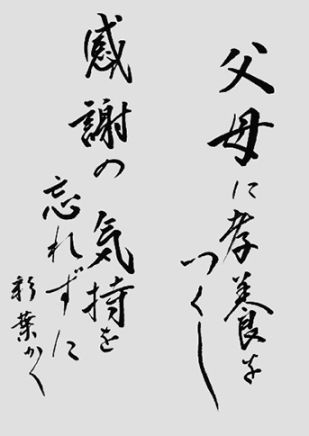 父母に孝養を
つくし
感謝の気持を
忘れずに
彩葉かく